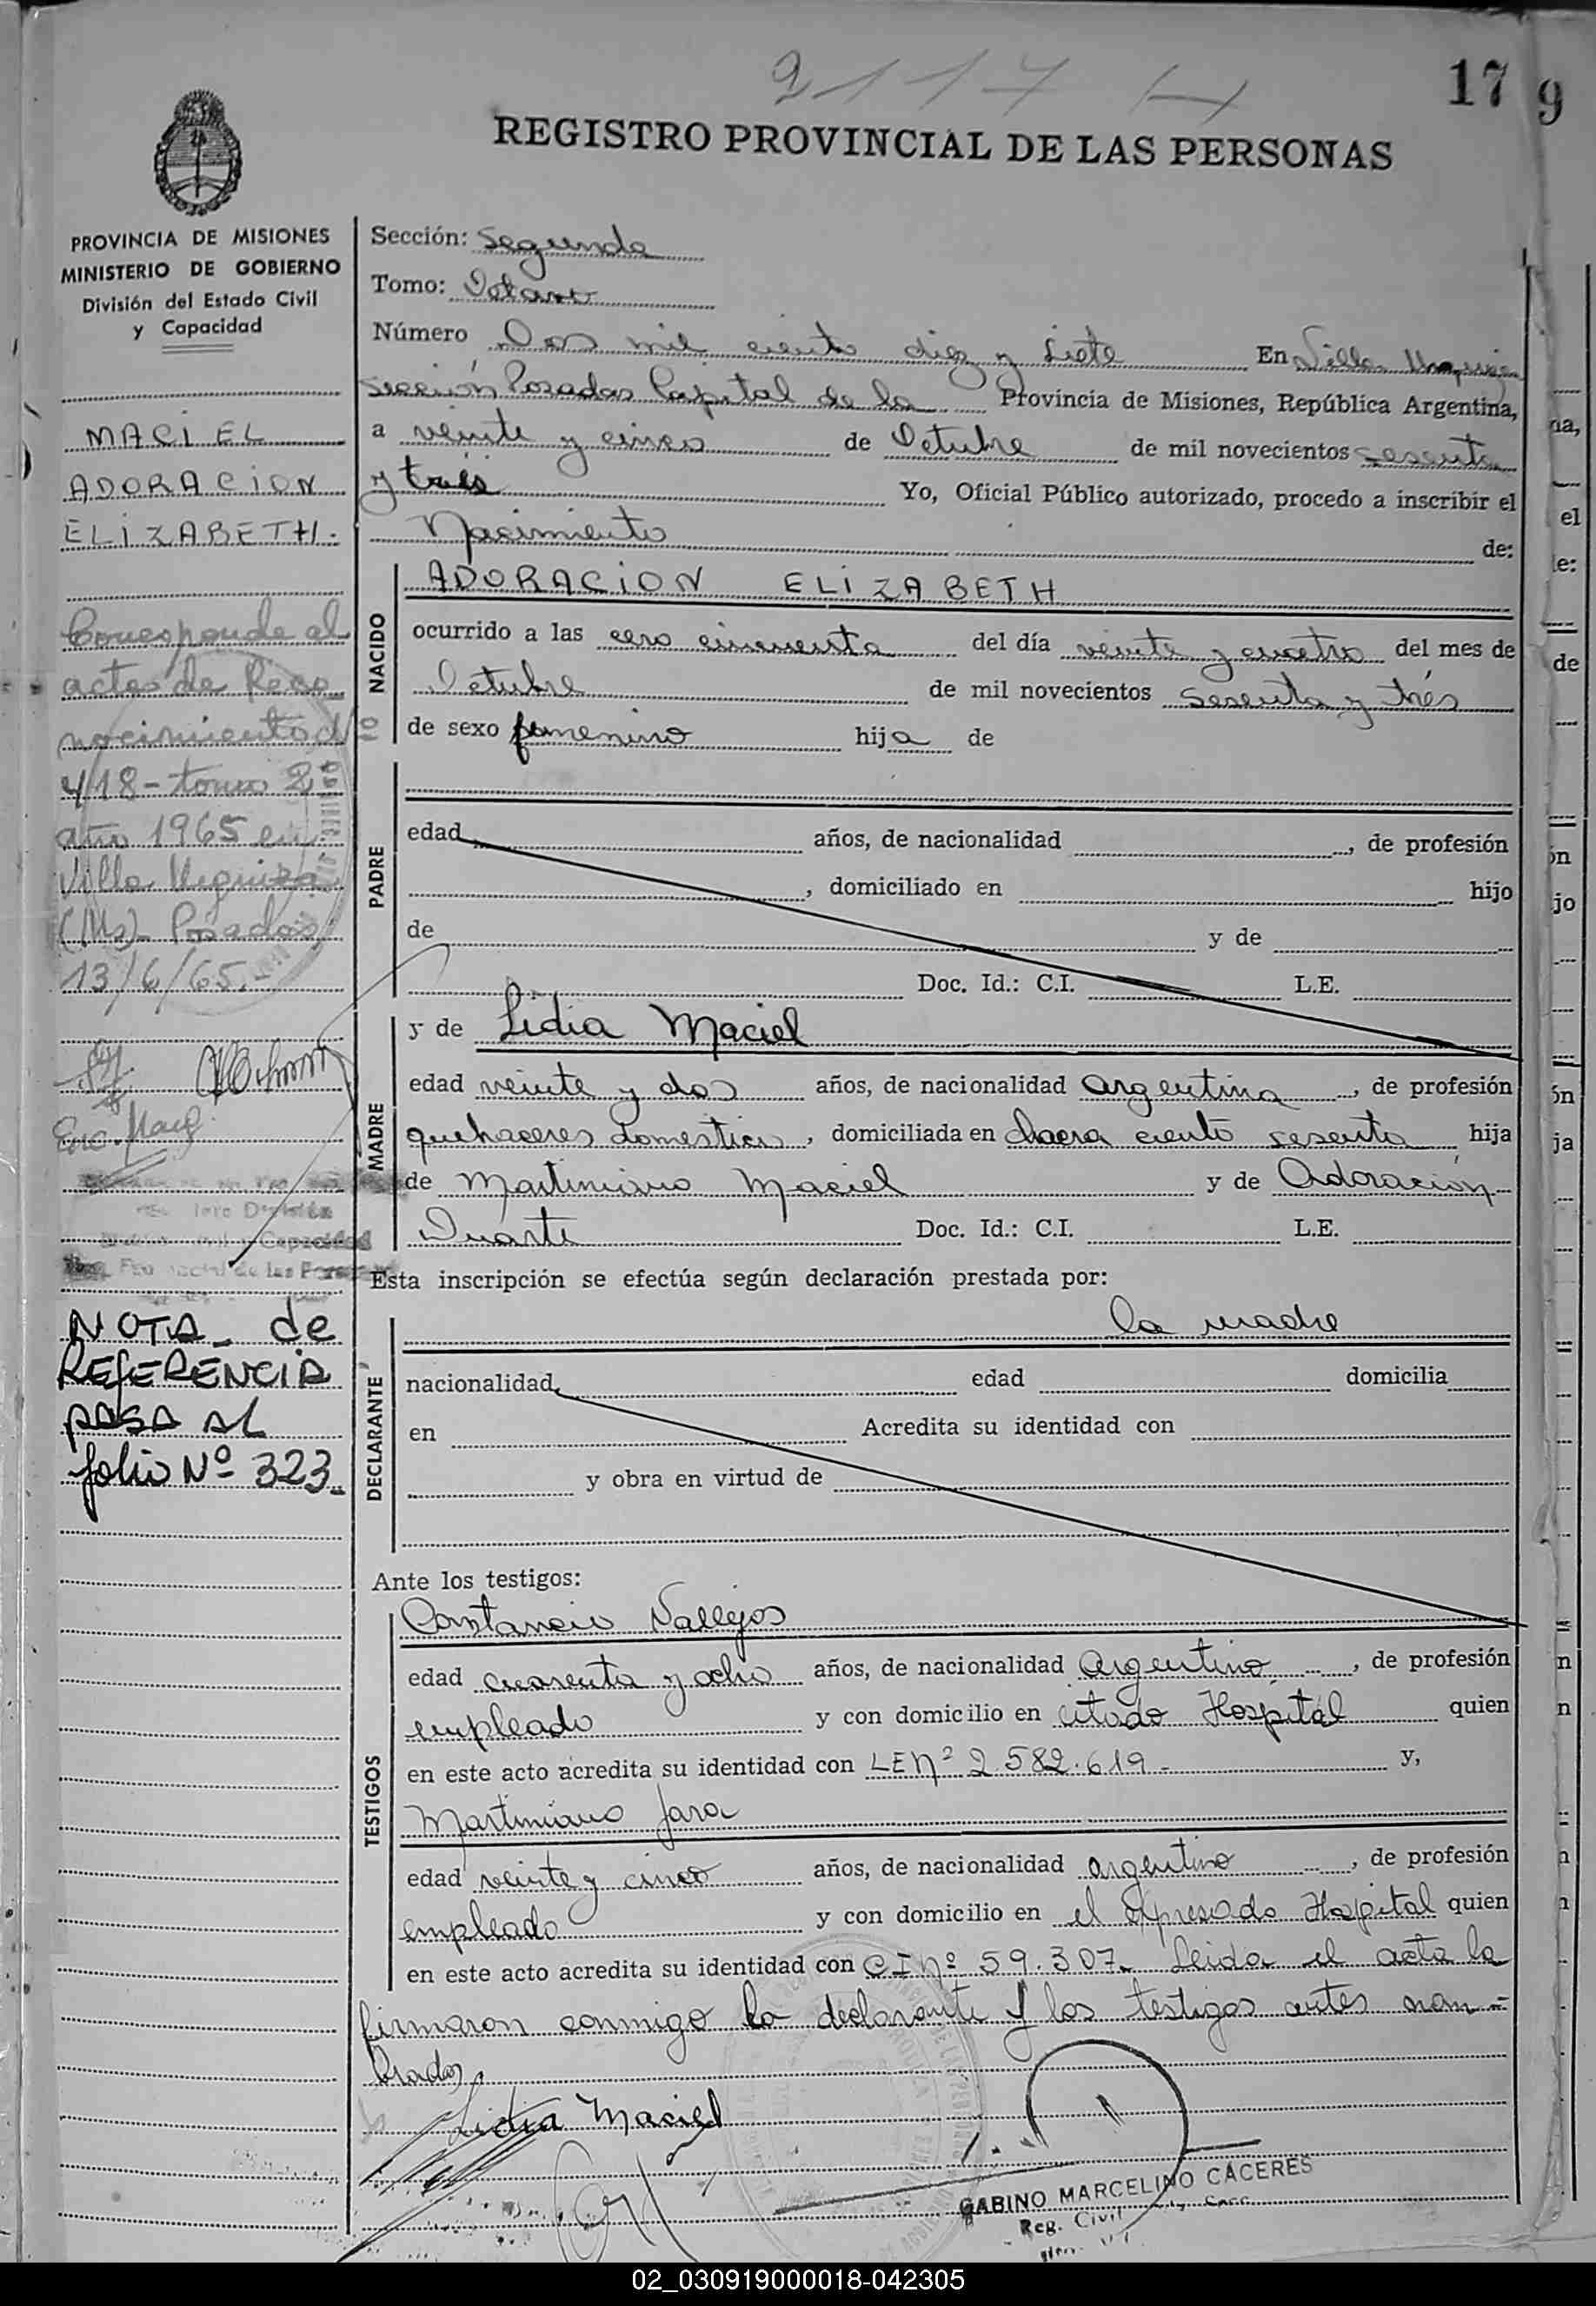 2117
17
9
REGISTRO PROVINCIAL DE LAS PERSONAS
PROVINCIA DE MISIONES
MINISTERIO DE GOBIERNO
División del Estado Civil
y Capacidad
MACIEL
ADORACION
ELIZABETH.
Corresponde al
acta de Reco
nocimiento
418 - tomo 2º
año 1965 en
Villa Urquiza
(Ms) Posadas
13/6/65.-
Enc. Marg.
NOTA - de
REFERENCIA
PASA AL
folio Nº 323.
Sección: Segunda
Tomo: Octavo
Número Dos mil ciento diez y siete En Villa Urquiza
Sección Posadas Capital de la Provincia de Misiones, República Argentina,
a veinte y cinco de Octubre de mil novecientos sesenta
y trés Yo, Oficial Público autorizado, procedo a inscribir el
Nacimiento de:
NACIDO
ADORACION ELIZABETH
ocurrido a las cero cincuenta del día veinte y cuatro del mes de
Octubre de mil novecientos sesenta y trés
de sexo femenino hija de
PADRE
edad años, de nacionalidad , de profesión
, domiciliado en hijo
de y de
Doc. Id.: C.I. L.E.
MADRE
y de Lidia Maciel
edad veinte y dos años, de nacionalidad argentina , de profesión
quehaceres domesticos, domiciliada en chacra ciento sesenta hija
de Martiniano Maciel y de Adoración
Duarte Doc. Id.: C.I. L.E.
Esta inscripción se efectúa según declaración prestada por:
DECLARANTE
la madre
nacionalidad edad domicilia
en Acredita su identidad con
y obra en virtud de
Ante los testigos:
TESTIGOS
Constancio Vallejos
edad cuarenta y ocho años, de nacionalidad argentino , de profesión
empleado y con domicilio en citado Hospital quien
en este acto acredita su identidad con LE Nº 2.582.619 - y,
Martiniano Jara
edad veinte y cinco años, de nacionalidad argentino , de profesión
empleado y con domicilio en el expresado Hospital quien
en este acto acredita su identidad con CI Nº 59.307. Leida el acta la
firmaron conmigo la declarante y los testigos antes nom=
brados
Lidia Maciel
GABINO MARCELINO CACERES
Reg. Civil
02_030919000018-042305